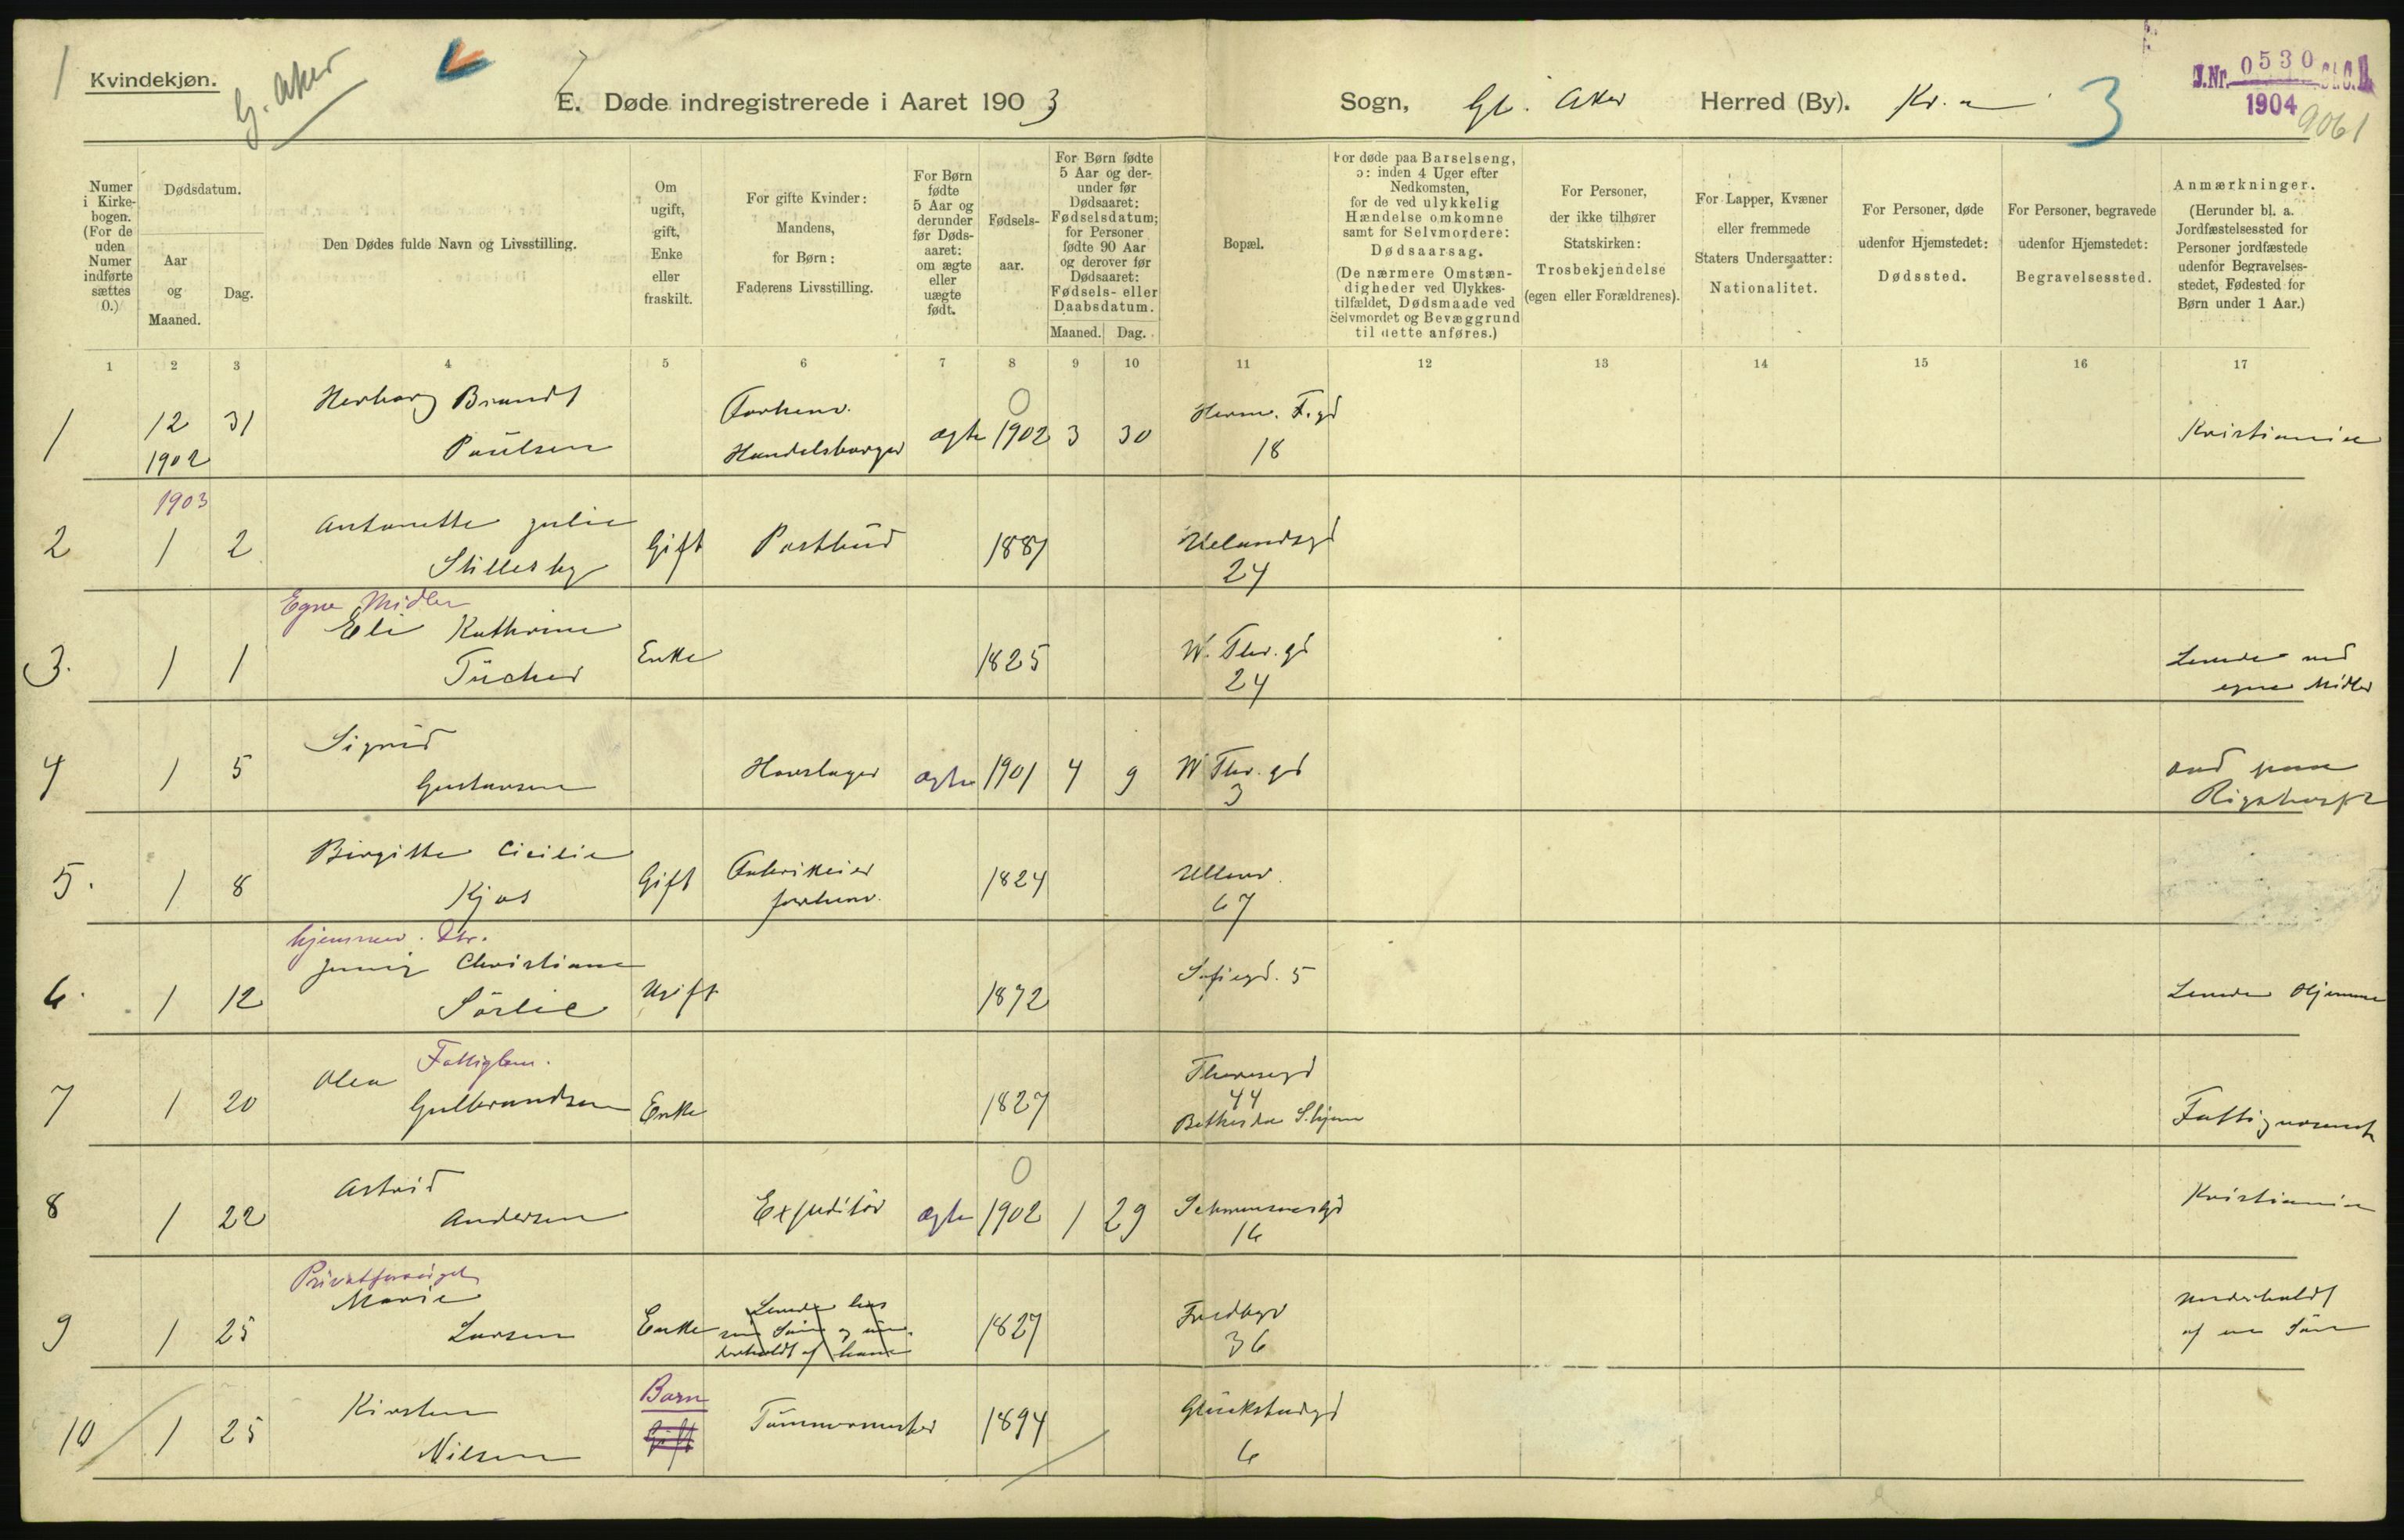 1 Kvindekjøn.
G. Aker
E. Døde indregistrerede i Aaret 1903 Sogn, Gl. Aker Herred (By). Kr.a
3
J.Nr. 0530 St.C.B.
1904
9061
Numer i Kirkebogen. (For de uden Numer indførte sættes 0.)
Dødsdatum.
Aar og Maaned.
Dag.
Den Dødes fulde Navn og Livsstilling.
Om ugift, gift, Enke eller fraskilt.
For gifte Kvinder: Mandens, for Børn: Faderens Livsstilling.
For Børn fødte 5 Aar og derunder før Dødsaaret: om ægte eller uægte født.
Fødselsaar.
For Børn fødte 5 Aar og derunder før Dødsaaret: Fødselsdatum; for Personer fødte 90 Aar og derover før Dødsaaret: Fødsels- eller Daabsdatum.
Maaned. Dag.
Bopæl.
For døde paa Barselseng, ɔ: inden 4 Uger efter Nedkomsten, for de ved ulykkelig Hændelse omkomne samt for Selvmordere: Dødsaarsag.
(De nærmere Omstændigheder ved Ulykkestilfældet, Dødsmaade ved Selvmordet og Bevæggrund til dette anføres.)
For Personer, der ikke tilhører Statskirken: Trosbekjendelse (egen eller Forældrenes).
For Lapper, Kvæner eller fremmede Staters Undersaatter: Nationalitet.
For Personer, døde udenfor Hjemstedet: Dødssted.
For Personer, begravede udenfor Hjemstedet: Begravelsessted.
Anmærkninger.
(Herunder bl. a. Jordfæstelsessted for Personer jordfæstede udenfor Begravelsesstedet, Fødested for Børn under 1 Aar.)
1 2 3 4 5 6 7 8 9 10 11 12 13 14 15 16 17
Herborg Brandt Forhenv. 0 Herm. F.gd
1 12 31 Paulsen Handelsborger ægte 1902 3 30 18 Kristiania
1902
1903
Antonette Julie
2 1 2 Stillesby Gift Postbud 1887 Uelandsgd
24
Egne Midler
Eli Kathrine
3. 1 1 Tücher Enke 1825 W. Thr. gd Levede med
24 egne Midler
Sigrid
4 1 5 Gustavsen Hovslager ægte 1901 4 9 W Thr. gd ord paa
3 Rigshosp
Birgitte Cicilie
5. 1 8 Kjos Gift Fabrikeier 1824 Ullev.
forhenv. 67
hjemmev. Dtr.
Jenny Christiane
6. 1 12 Sörlie Ugift 1872 Sofiegd. 5 Levede Hjemme
Fattiglem.
Olea Theresegd
7 1 20 Gulbrandsen Enke 1827 44
Bethesda S.hjem Fattigunderst
Astrid 0
8 1 22 Andersen Expeditör ægte 1902 1 29 Schwensensgd Kristiania
16
Privatforsörget
Marie Levede hos Underholdt
9 1 25 Larsen Enke sin Sön og un- 1827 Fredbgv af en Sön
derholdt af ham 36
Barn
Kirsten Glückstadgd
10 1 25 Gift Tömmermester 1894
Nilsen 6